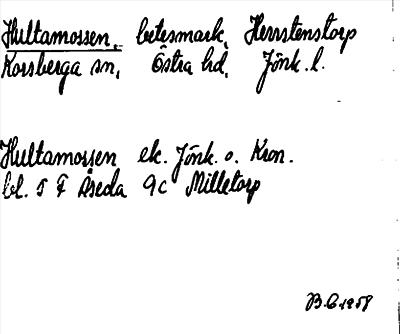 Hultamossen, betesmark, Herrstenstorp
Korsberga sn, Östra hd, Jönk. l.
Hultamossen ek. Jönk. o. Kron.
bl. 5 F Åseda 9c Milletorp
B.G. 1958